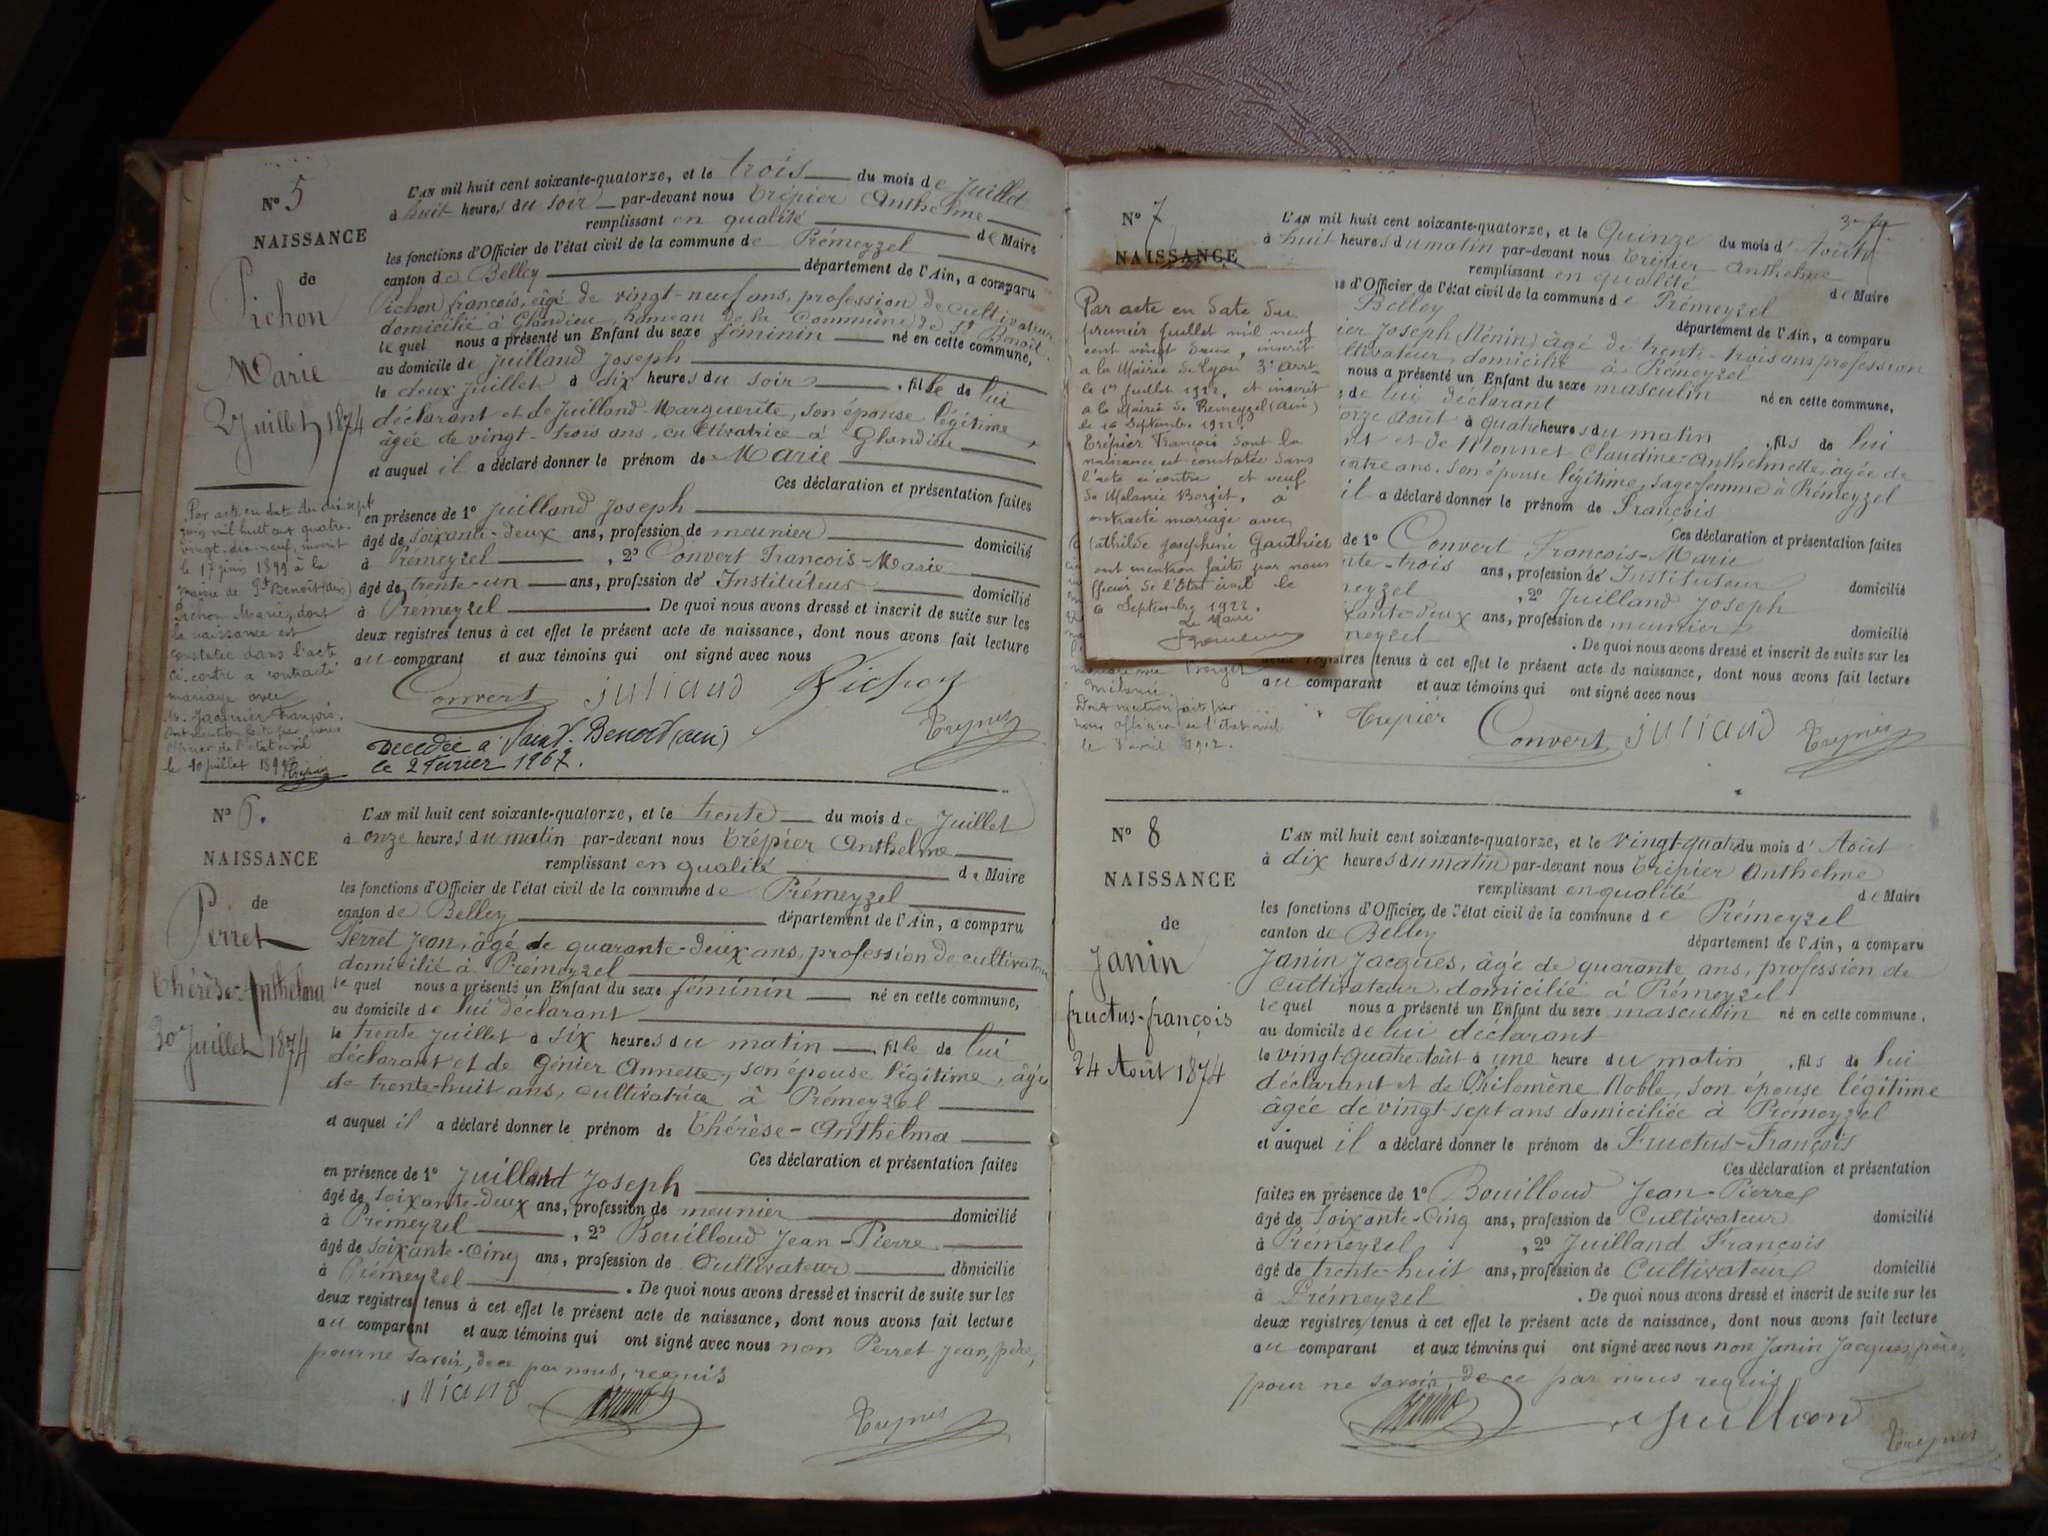 N° 5
NAISSANCE
de
Pichon
Marie
2 Juillet 1874
L'AN mil huit cent soixante-quatorze, et le trois du mois de Juillet
à huit heures du soir par-devant nous Trépier Anthelme
remplissant en qualité de Maire
les fonctions d'Officier de l'état civil de la commune de Prémeyzel
canton de Belley département de l'Ain, a comparu
Pichon françois, âgé de vingt-neuf ans, profession de cultivateur
domicilié à Glandieu, hameau de la Commune de St Benoit.
le quel nous a présenté un Enfant du sexe féminin né en cette commune,
au domicile de Juilland Joseph
le deux Juillet à dix heures du soir, fille de lui
déclarant et de Juilland Marguerite, son épouse légitime,
âgée de vingt-trois ans, cultivatrice à Glandieu
et auquel il a déclaré donner le prénom de Marie
Ces déclaration et présentation faites
en présence de 1° Juilland Joseph
âgé de soixante-deux ans, profession de meunier domicilié
à Prémeyzel, 2° Convert François-Marie
âgé de trente-un ans, profession de Instituteur domicilié
à Prémeyzel. De quoi nous avons dressé et inscrit de suite sur les
deux registres tenus à cet effet le présent acte de naissance, dont nous avons fait lecture
au comparant et aux témoins qui ont signé avec nous
Convert juliand Pichon
Trepier
Décédée à Saint-Benoit (ain)
le 2 Février 1967.
Par acte en date du dix sept
juin mil huit cent quatre-
vingt-dix-neuf, inscrit
le 17 juin 1899 à la
mairie de St Benoit (ain)
Pichon Marie, dont
la naissance est
constatée dans l'acte
ci-contre a contracté
mariage avec
M. Jacquier François.
Dont mention faite par nous
officier de l'état civil
le 10 juillet 1899
Trépier
N° 6.
NAISSANCE
de
Perret
Thérèse-Anthelma
30 Juillet 1874
L'AN mil huit cent soixante-quatorze, et le trente du mois de Juillet
à onze heures du matin par-devant nous Trépier Anthelme
remplissant en qualité de Maire
les fonctions d'Officier de l'état civil de la commune de Prémeyzel
canton de Belley département de l'Ain, a comparu
Perret Jean, âgé de quarante-deux ans, profession de cultivateur
domicilié à Prémeyzel
le quel nous a présenté un Enfant du sexe féminin né en cette commune,
au domicile de lui déclarant
le trente Juillet à six heures du matin, fille de lui
déclarant et de Génier Annette, son épouse légitime, âgée
de trente-huit ans, cultivatrice à Prémeyzel
et auquel il a déclaré donner le prénom de Thérèse-Anthelma
Ces déclaration et présentation faites
en présence de 1° Juilland Joseph
âgé de soixante-deux ans, profession de meunier domicilié
à Prémeyzel, 2° Bouilloud Jean-Pierre
âgé de soixante-cinq ans, profession de Cultivateur domicilié
à Prémeyzel. De quoi nous avons dressé et inscrit de suite sur les
deux registres tenus à cet effet le présent acte de naissance, dont nous avons fait lecture
au comparant et aux témoins qui ont signé avec nous non Perret Jean, père,
pour ne savoir, de ce par nous, requis
Trepier
N° 7
NAISSANCE
Par acte en date du
premier Juillet mil neuf
cent vingt deux, inscrit
a la Mairie de Lyon 3e arrt
le 1er Juillet 1922, et inscrit
a la Mairie de Premeyzel (ain)
le 16 Septembre 1922.
Trépier François dont la
naissance est constatée dans
l'acte ci contre et veuf
de Melanie Borget, a
contracté mariage avec
Mathilde Josephine Gauthier
Dont mention faite par nous
officier de l'Etat civil le
Septembre 1922.
Le Maire
mariage avec Borget
Mélanie.
Dont mention faite par
nous officier de l'état civil
le 8 avril 1912.
L'AN mil huit cent soixante-quatorze, et le Quinze du mois d'Août
à huit heures du matin par-devant nous Trépier Anthelme
remplissant en qualité de Maire
s d'Officier de l'état civil de la commune de Prémeyzel
Belley département de l'Ain, a comparu
ier Joseph (Génin) âgé de trente-trois ans profession
ltivateur, domicilié à Prémeyzel
nous a présenté un Enfant du sexe masculin né en cette commune,
de lui déclarant
onze août à quatre heures du matin, fils de lui
nt et de Monnet Claudine-Anthelmette, âgée de
ntre ans, son épouse légitime, sage-femme à Prémeyzel
il a déclaré donner le prénom de François
Ces déclaration et présentation faites
de 1° Convert François-Marie
nte-trois ans, profession de Instituteur domicilié
meyzel, 2° Juilland Joseph
xante-deux ans, profession de meunier domicilié
meyzel. De quoi nous avons dressé et inscrit de suite sur les
deux registres tenus à cet effet le présent acte de naissance, dont nous avons fait lecture
au comparant et aux témoins qui ont signé avec nous
Trepier Convert juliand Trepier
N° 8
NAISSANCE
de
Janin
fructus-françois
24 Août 1874
L'AN mil huit cent soixante-quatorze, et le vingt-quatre du mois d'Août
à dix heures du matin par-devant nous Trépier Anthelme
remplissant en qualité de Maire
les fonctions d'Officier de l'état civil de la commune de Prémeyzel
canton de Belley département de l'Ain, a comparu
Janin Jacques, âgé de quarante ans, profession de
cultivateur, domicilié à Prémeyzel
le quel nous a présenté un Enfant du sexe masculin né en cette commune,
au domicile de lui déclarant
le vingt-quatre Août à une heure du matin, fils de lui
déclarant et de Philomène Noble, son épouse légitime
âgée de vingt-sept ans domiciliée à Prémeyzel
et auquel il a déclaré donner le prénom de Fructus-François
Ces déclaration et présentation
faites en présence de 1° Bouilloud Jean-Pierre
âgé de soixante-cinq ans, profession de Cultivateur domicilié
à Prémeyzel, 2° Juilland François
âgé de trente-huit ans, profession de Cultivateur domicilié
à Prémeyzel. De quoi nous avons dressé et inscrit de suite sur les
deux registres tenus à cet effet le présent acte de naissance, dont nous avons fait lecture
au comparant et aux témoins qui ont signé avec nous non Janin Jacques, père,
pour ne savoir, de ce par nous requis
Trepier